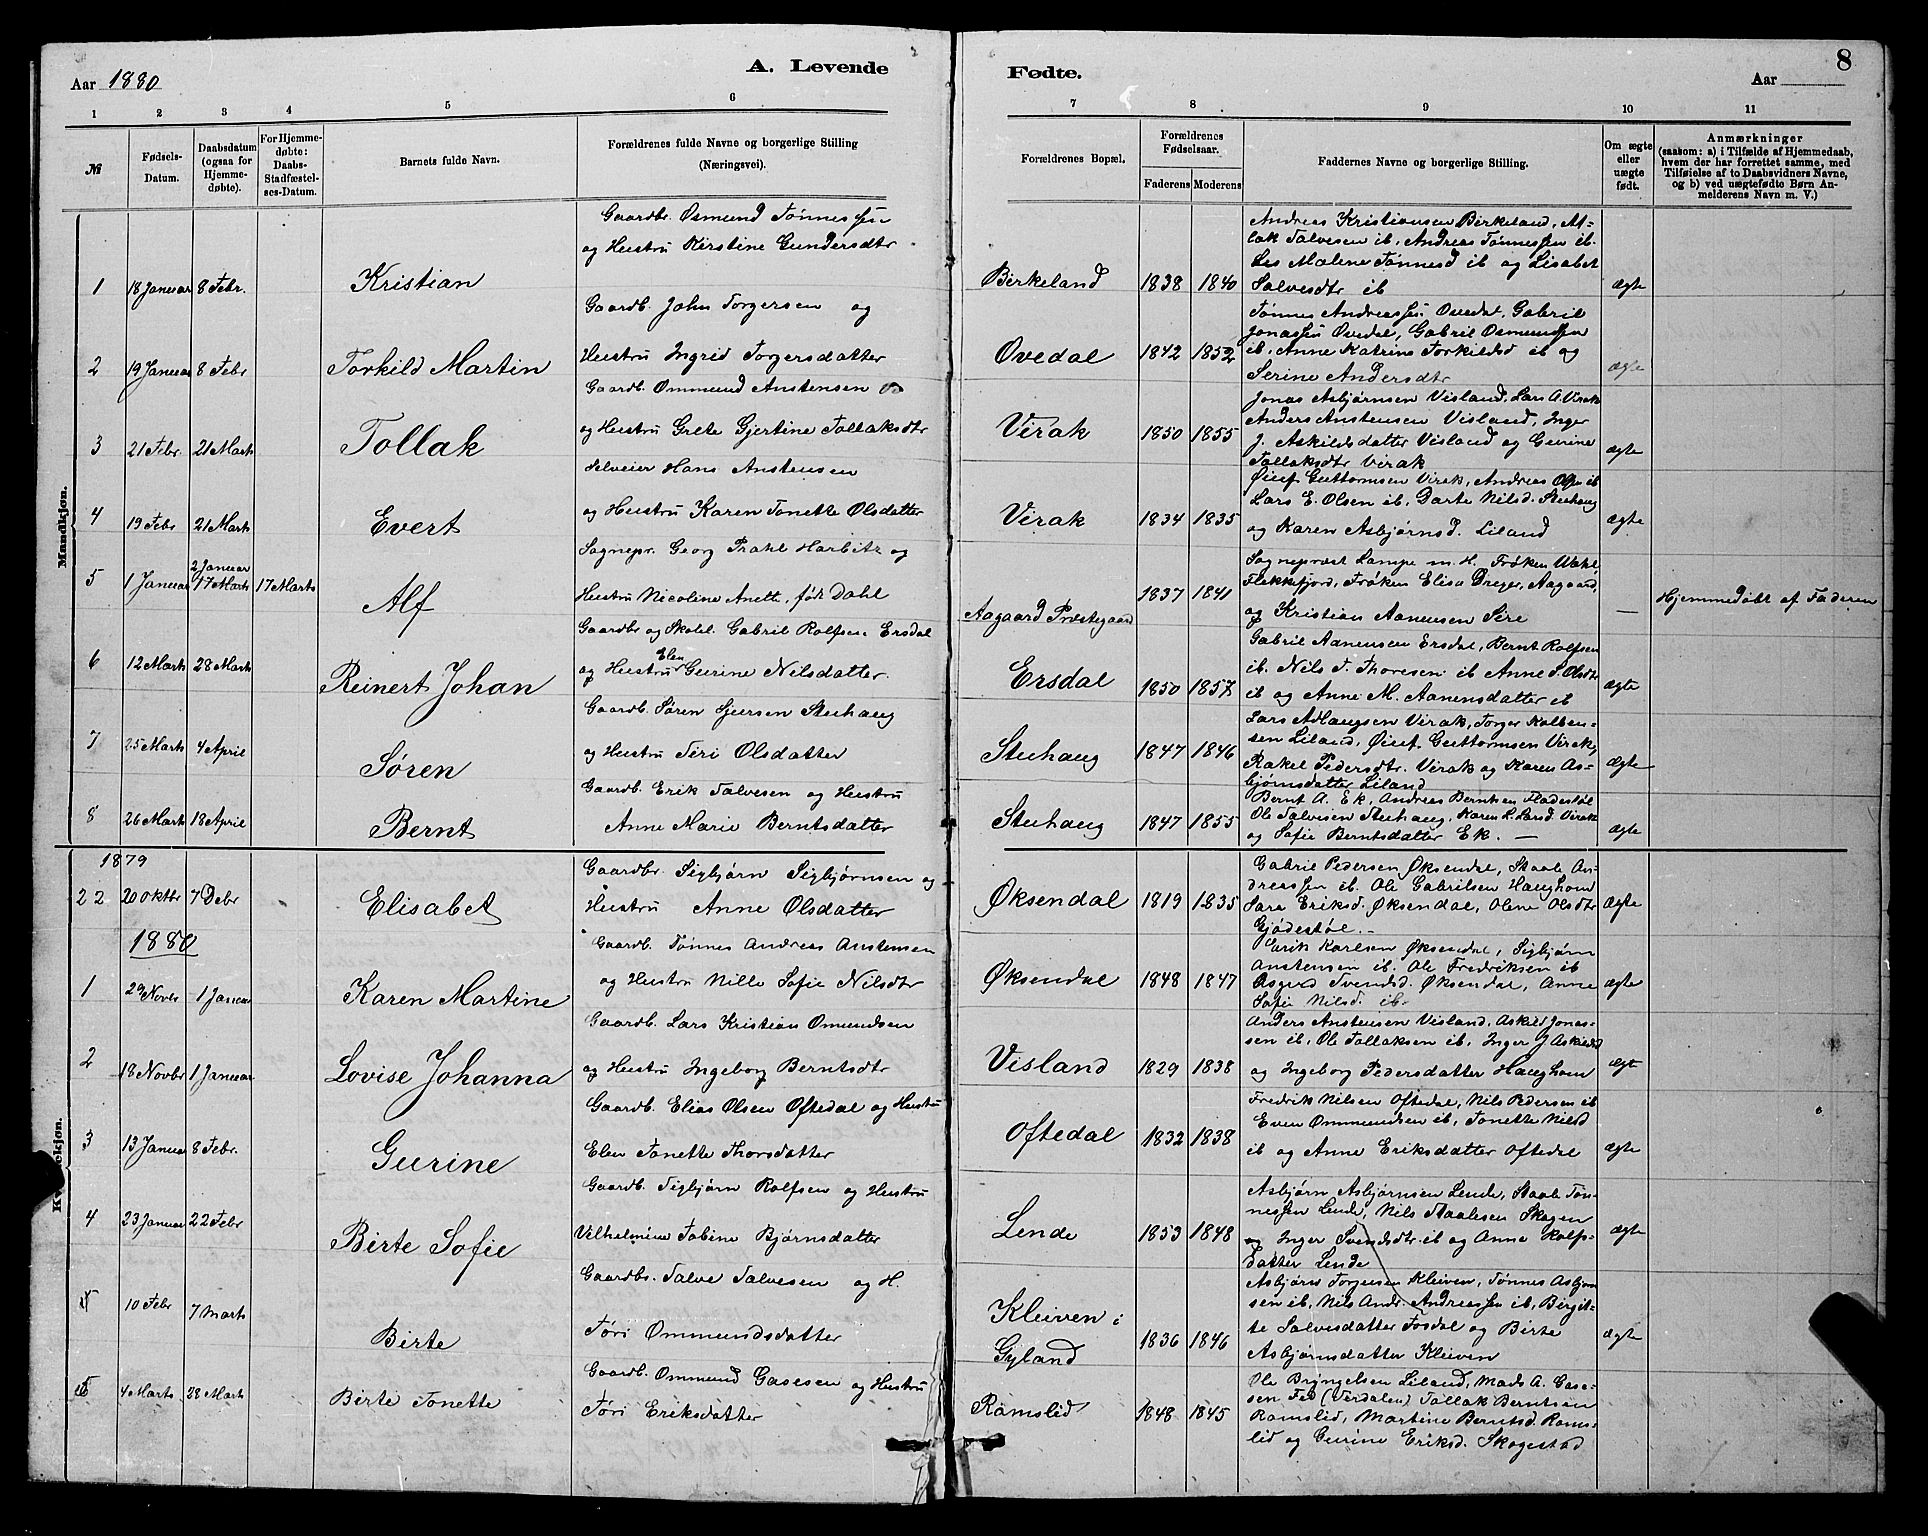 Aar 1880
A. Levende
Fødte.
Aar
8
1 2 3 4 5 6 7 8 9 10 11
№
Fødsels-Datum.
Daabsdatum (ogsaa for Hjemme-døbte).
For Hjemme-døbte: Daabs-Stadfæstel-ses-Datum.
Barnets fulde Navn.
Forældrenes fulde Navne og borgerlige Stilling (Næringsvei).
Forældrenes Bopæl.
Forældrenes Fødselsaar.
Faderens Moderens
Faddernes Navne og borgerlige Stilling.
Om ægte eller uægte født.
Anmærkninger
(saasom: a) i Tilfælde af Hjemmedaab,
hvem der har forrettet samme, med
Tilføielse af to Daabsvidners Navne,
og b) ved uægtefødte Børn An-
melderens Navn m. V.)
Mandkjøn.
1 18 Januar 8 Febr. Kristian
Gaardbr. Osmund Tønnessen
og Hustru Kirstine Gundersdtr
Birkeland 1838 1840
Andreas Kristiansen Birkeland, At-
lak Salvesen ib, Andreas Tønnessen ib.
Malene Tønnesd ib og Lisabet
Salvesdtr ib
ægte
2 19 Januar 8 Febr Torkild Martin
Gaardb. John Torgersen og
Hustru Ingrid Torgersdatter
Ovedal 1842 1852
Tønnes Andreassen Ovedal, Gabriel
Jonassen Ovedal, Gabril Osmundsen
ib, Anne Katrine Torkildsd ib og
Serine Andersdtr
ægte
3 21 Febr 21 Marts Tollak
Gaardb. Ommund Anstensen og
og Hustru Grete Gjertine Tollaksdtr
Virak 1850 1855
Jonas Asbjørnsen Visland, Lars A. Virak
Anders Anstensen Visland, Inger
J. Askildsdatter Visland og Gurine
Tollaksdtr Virak
ægte
4 19 Febr 21 Marts Evert
Selveier Hans Anstensen
og Hustru Karen Tonette Olsdatter
Virak 1834 1835
Guttormsen Virak, Andreas Olsen ib
Lars E. Olsen ib, Dorte Nilsd. Stuhaug
og Karen Asbjørnsd. Liland
ægte
5 1 Januar 2 Januar 17 Marts 17 Marts Alf
Sognepr. Georg Prahl Harbitz og
Hustru Nicoline Anette, født Dahl
Aagaard Præstegaard 1837 1841
Sognepræst Lampe m. H. Frøken Wahl,
Flekkefjord, Frøken Elisa Dreyer, Aagaard,
og Kristian Aanensen Sire
—
Hjemmedøbt af Faderen
6 12 Marts 28 Marts Reinert Johan
Gaardbr og Skolel. Gabril Rolfsen Ersdal
og Hustru Elen Gurine Nilsdatter.
Ersdal 1850 1857
Gabril Aanensen Ersdal, Bernt Rolfsen
ib. Nils T. Thoresen ib Anne S. Olsdtr
ib og Anne M. Aanensdatter ib
ægte
7 25 Marts 4 April Søren
Gaardb. Søren Sjursen Stuhaug
og Hustru Siri Olsdatter
Stuhaug 1847 1846
Lars Adlaugsen Virak, Torger Kolben-
sen Liland, Guttormsen Virak,
Rakel Pedersdtr. Virak og Karen As-
bjørnsdatter Liland
ægte
8 26 Marts 18 April Bernt
Gaardb. Erik Salvesen og Hustru
Anne Marie Berntsdatter
Stuhaug 1847 1855
Bernt A. Ek, Andreas Berntsen Fladestøl
Ole Salvesen Stuhaug, Karen L. Larsd. Virak
og Sofie Berntsdatter Ek. —
ægte
Kvindekjøn.
1879
22 20 Oktbr 7 Debr Elisabet
Gaardbr. Sigbjørn Sigbjørnsen og
Hustru Anne Olsdatter
Øksendal 1819 1835
Gabriel Pedersen Øksendal, Staale An-
dreassen ib. Ole Gabrilsen Haughom
Sara Eriksd. Øksendal, Olene Olsdtr
Gjødestøl. -
ægte
1880
1 29 Novbr 1 Januar Karen Martine
Gaardb. Tønnes Andreas Anstensen
og Hustru Nille Sofie Nilsdtr
Øksendal 1848 1847
Erik Karlsen Øksendal, Sigbjørn
Anstensen ib. Ole Fredriksen ib
Asgerd Svendsd. Øksendal, Anne
Sofie Nilsd. ib.
ægte
2 18 Novbr 1 Januar Lovise Johanna
Gaardb. Lars Kristian Omundsen
og Hustru Ingeborg Berntsdtr
Visland 1829 1838
Anders Anstensen Visland, Askild Jonas-
sen ib, Ole Tollaksen ib, Inger J Askildsd
og Ingeborg Pedersdatter Haughom
ægt
3 13 Januar 8 Febr. Gurine
Gaardb. Elias Olsen Oftedal og Hustru
Elen Tonette Thorsdatter
Oftedal 1832 1838
Fredrik Nilsen Oftedal, Nils Pedersen ib
Even Ommundsen ib, Tonette Nilsd
ib og Anne Eriksdatter Oftedal
ægte
4 23 Januar 22 Febr Birte Sofie
Gaardb. Sigbjørn Rolfsen og Hustru
Vilhelmine Tobine Bjørnsdatter
Lende 1853 1848
Asbjørn Asbjørnsen Lende, Staale Tøn-
nessen Lende, Nils Staalesen Skogen
og Inger Svendsdtr. ib og Anne Rolfs-
datter Lende
ægte
5 10 Febr 7 Marts Birte
Gaardbr. Salve Salvesen og H.
Tøri Ommundsdatter
Kleiven i
Gyland 1836 1846
Asbjørn Torgersen Kleiven, Tønnes Asbjørn
sen ib, Nils Andr. Andreassen ib, Birgit-
te Salvesdatter Fosdal og Birte
Asbjørnsdatter Kleiven
ægte
4 Marts 28 Marts Birte Tonette
Gaardb. Ommund Gasesen og Hustru
Tøri Eriksdatter
Ramslid 1848 1845
Ole Bryngelsen Liland, Mads A. Gase-
sen Fed (Feidalen) Tollak Berntsen
Ramslid, Martine Berntsd. Rams-
lid og Gurine Eriksd. Skogestad